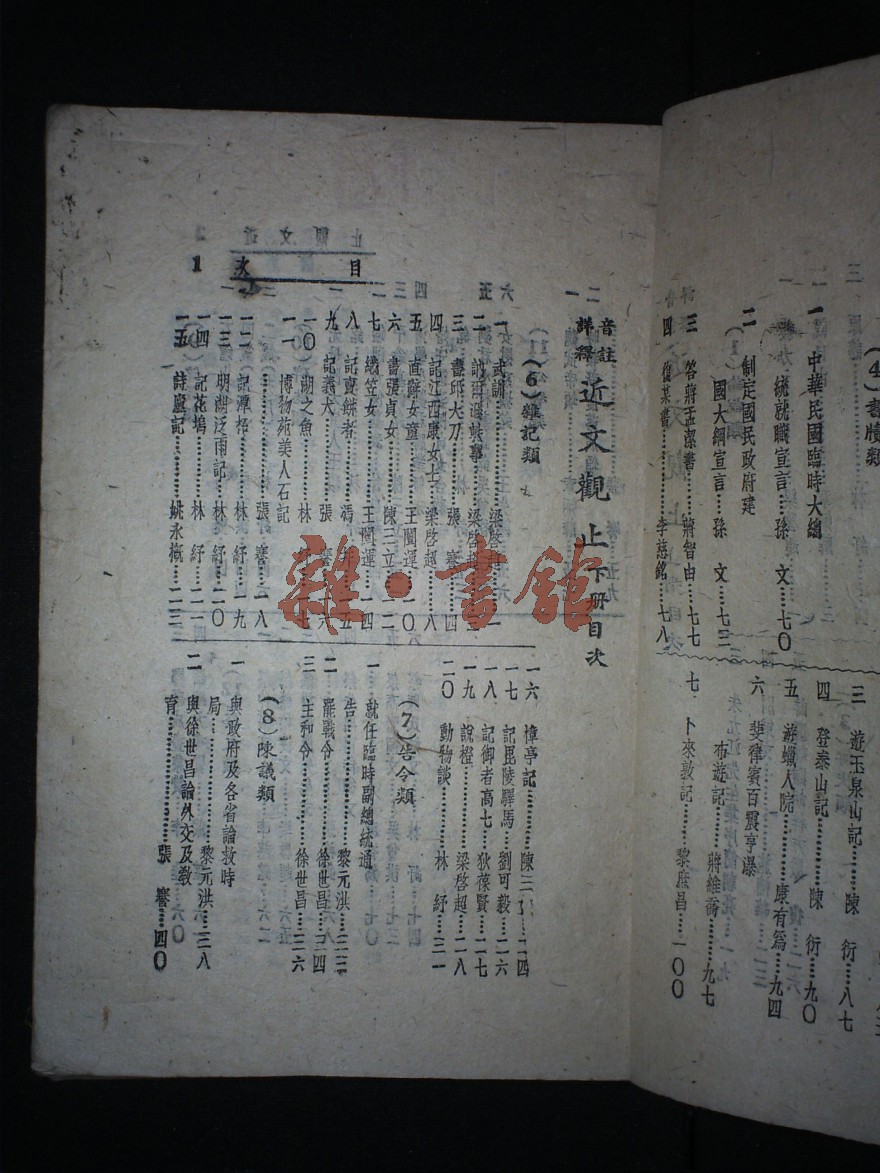 (4)書牘類
一 中華民國臨時大總
統就職宣言……孫 文……七〇
二 制定國民政府建
國大綱宣言……孫 文……七三
三 答蔣孟潔書……蔣智由……七七
四 復某書……李慈銘……七八
三 遊玉泉山記……陳 衍……八七
四 登泰山記……陳 衍……九〇
五 遊蠟人院……康有爲……九四
六 斐律賓百震亨瀑
布遊記……蔣維喬……九七
七 卜來敦記……黎庶昌……一〇〇
音註
詳釋
近文觀止下册目次
目次
1
(6)雜記類
一 武訓……梁啓超……一
二 記江西康女士……梁啓超……八
五 直隸女童……王闓運……一〇
六 書張貞女……陳三立……一二
七 織笠女……王闓運……一四
八 記賣餅者……馮……一五
九 記義犬……張 謇……一六
一〇 湖之魚……林 紓……一七
一一 博物苑美人石記
……張 謇……一八
一二 記潭柘……林 紓……一九
一三 明湖泛雨記……林 紓……二〇
一四 記花塢……林 紓……二一
一五 詩廬記……姚永概……二三
一六 樟亭記……陳三立……二四
一七 記毘陵驛馬……劉可毅……二六
一八 記御者高七……狄葆賢……二七
一九 說橙……梁啓超……二八
二〇 動物談……林 紓……三一
(7)告令類
一 就任臨時副總統通
告……黎元洪……三三
二 罷戰令……徐世昌……三四
三 主和令……徐世昌……三六
(8)陳議類
一 與政府及各省論救時
局……黎元洪……三八
二 與徐世昌論外交及教
育……張 謇……四〇
雜·書館